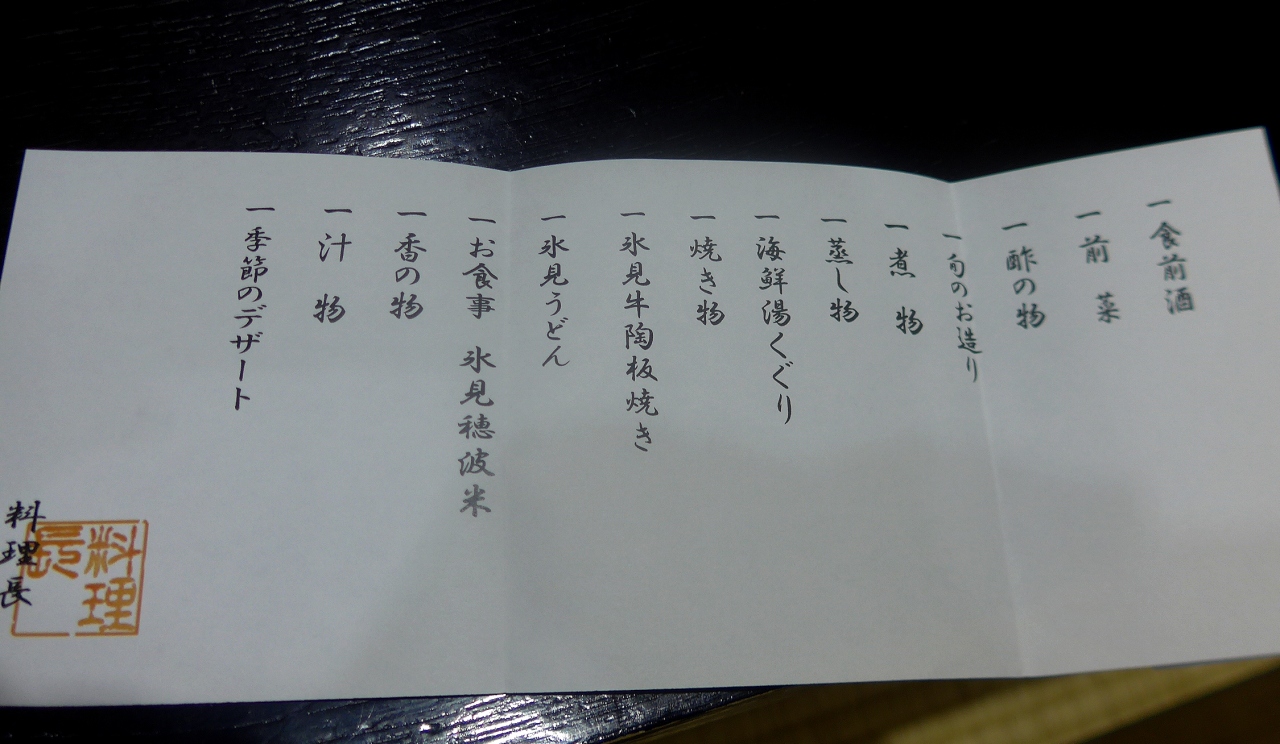 一 食前酒
一 前 菜
一 酢の物
一 旬のお造り
一 煮 物
一 蒸し物
一 海鮮湯くぐり
一 焼き物
一 氷見牛陶板焼き
一 氷見うどん
一 お食事 氷見穂波米
一 香の物
一 汁 物
一 季節のデザート
料理長
料理長